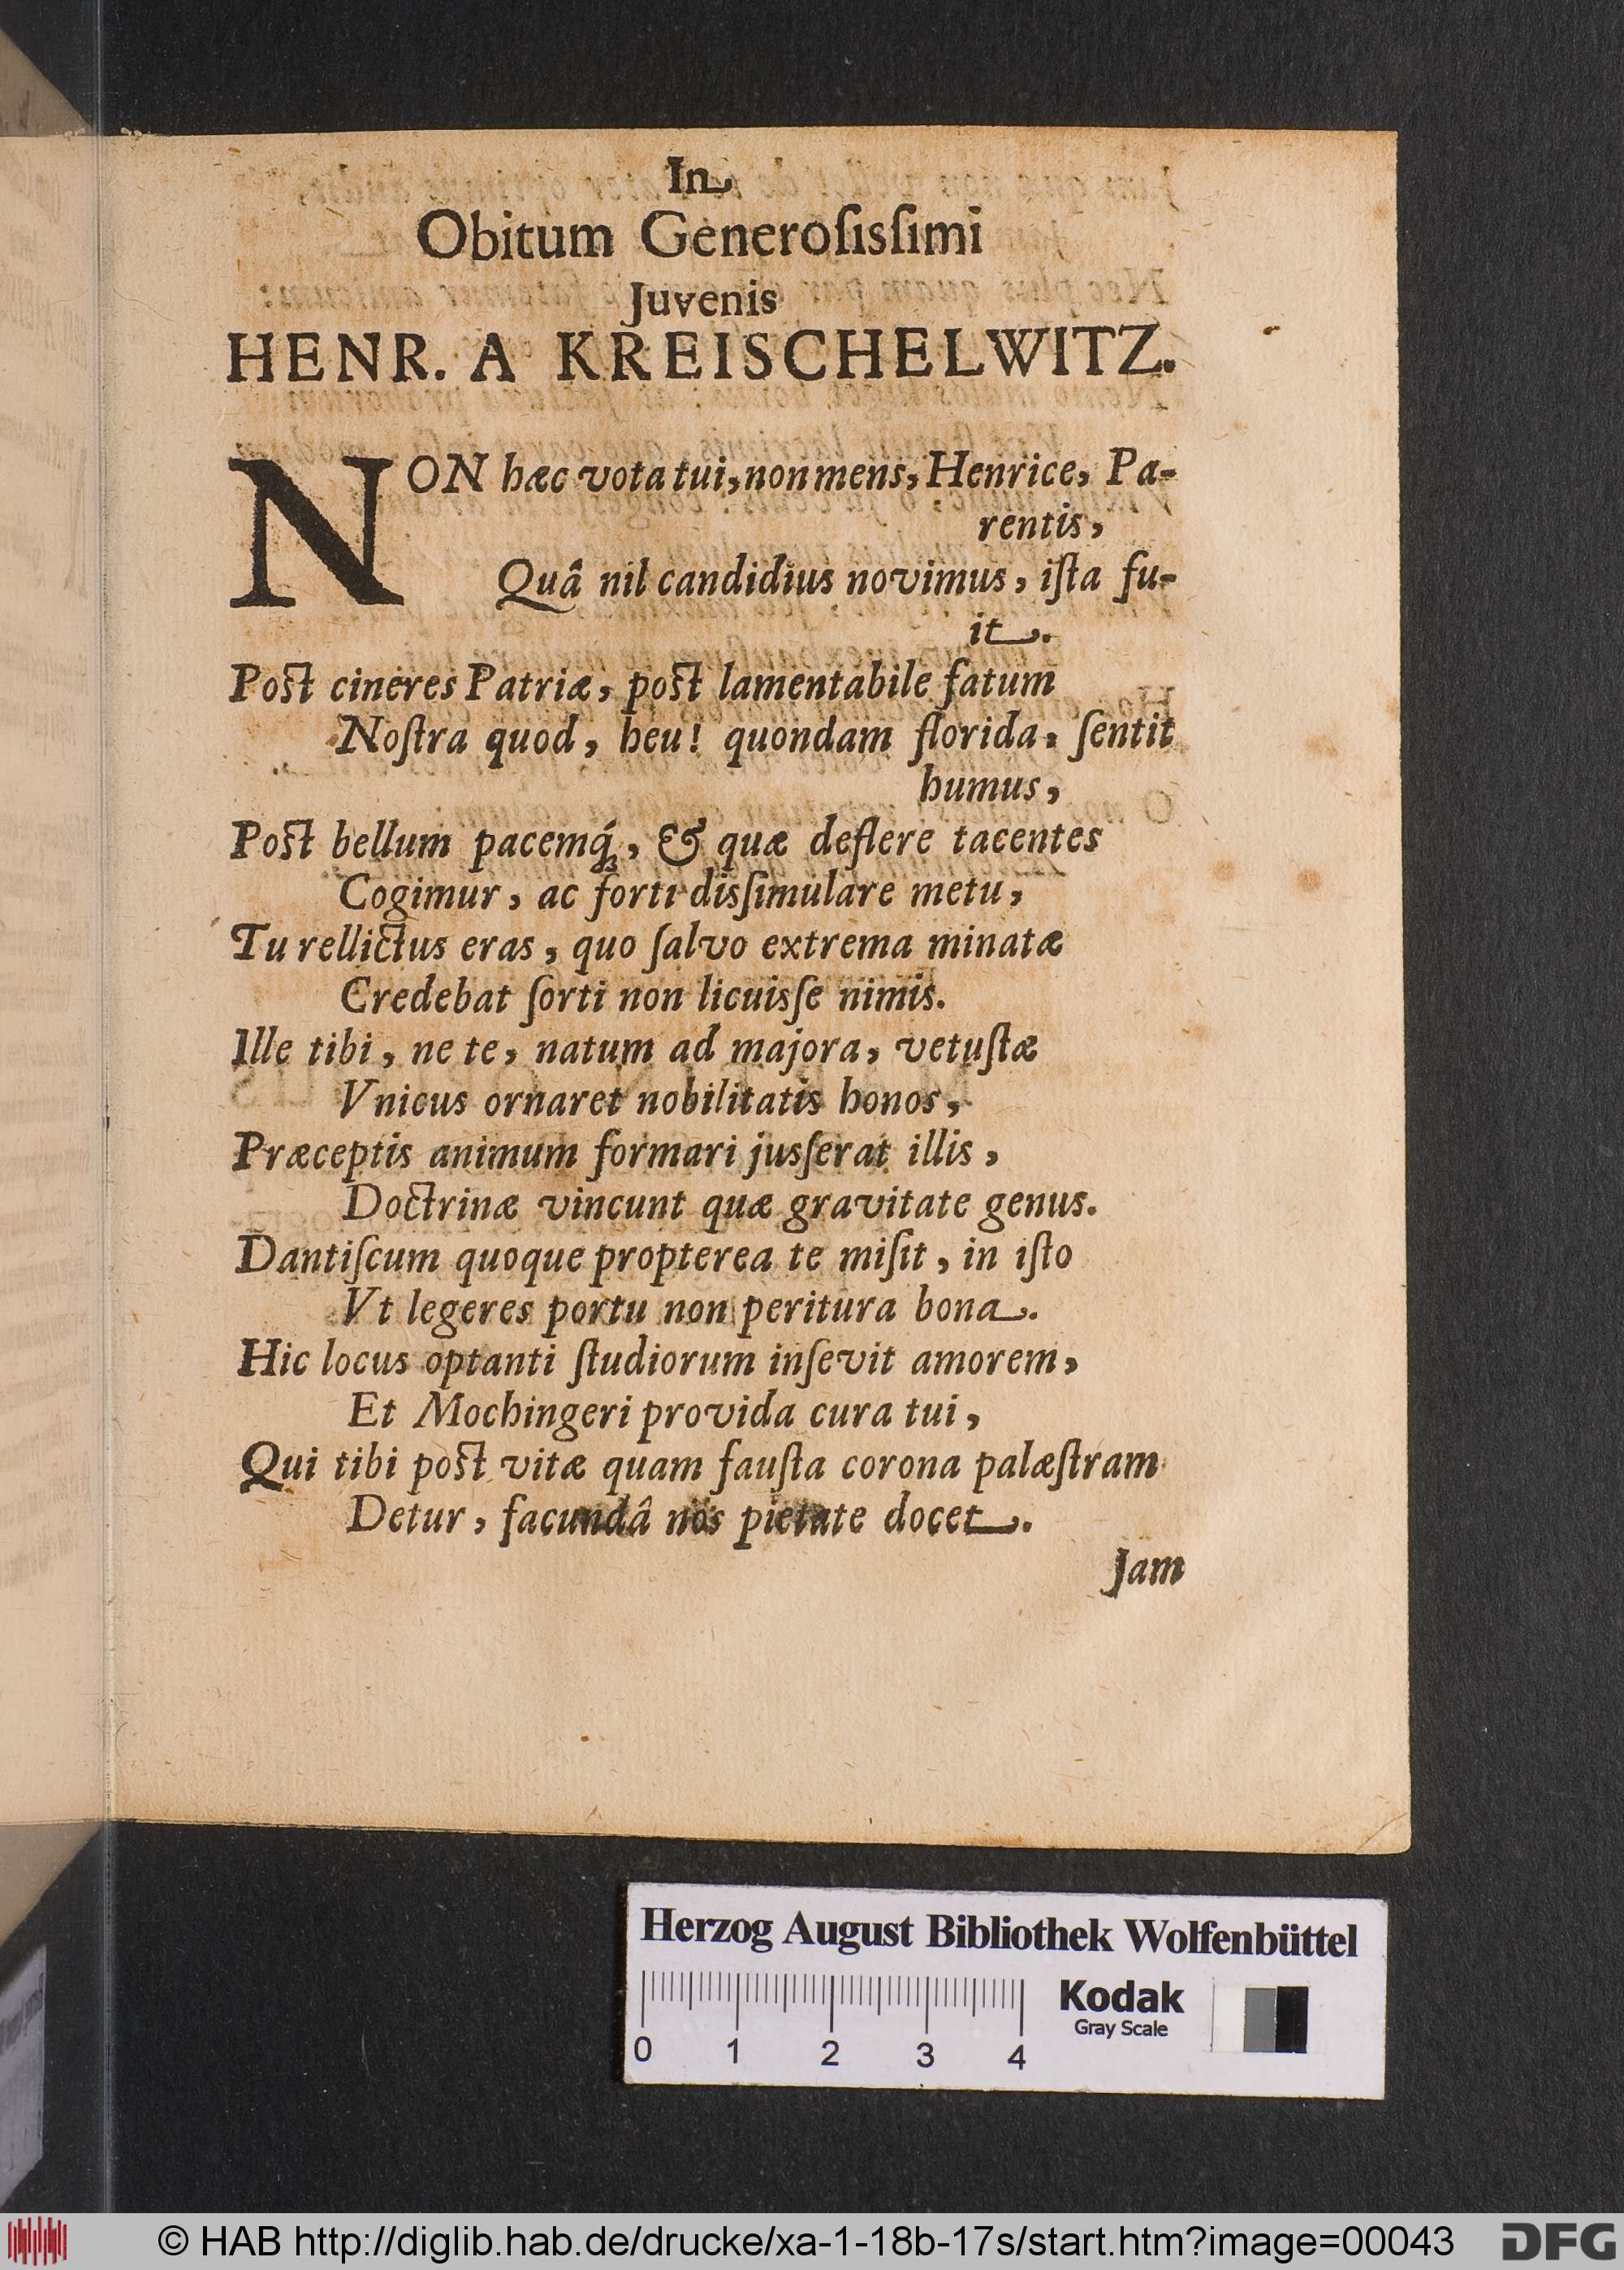 In
Obitum Generoſisſimi
Juvenis
HENR. A KREISCHELWITZ.
NON hæc vota tui, non mens, Henrice, Pa-
rentis,
Quâ nil candidius novimus, iſta fu-
it.
Poſt cineres Patriæ, poſt lamentabile fatum
Noſtra quod, heu! quondam florida, ſentit
humus,
Poſt bellum pacemq́;, & quæ deflere tacentes
Cogimur, ac forti disſimulare metu,
Tu rellictus eras, quo ſalvo extrema minatæ
Credebat ſorti non licuisſe nimis.
Ille tibi, ne te, natum ad majora, vetuſtæ
Vnicus ornaret nobilitatis honos,
Præceptis animum formari jusſerat illis,
Doctrinæ vincunt quæ gravitate genus.
Dantiſcum quoque propterea te miſit, in iſto
Vt legeres portu non peritura bona.
Hic locus optanti ſtudiorum inſevit amorem,
Et Mochingeri provida cura tui,
Qui tibi poſt vitæ quam fauſta corona palæſtram
Detur, facundâ nos pietate docet.
Jam
Herzog August Bibliothek Wolfenbüttel
Kodak
Gray Scale
0 1 2 3 4
© HAB http://diglib.hab.de/drucke/xa-1-18b-17s/start.htm?image=00043
DFG